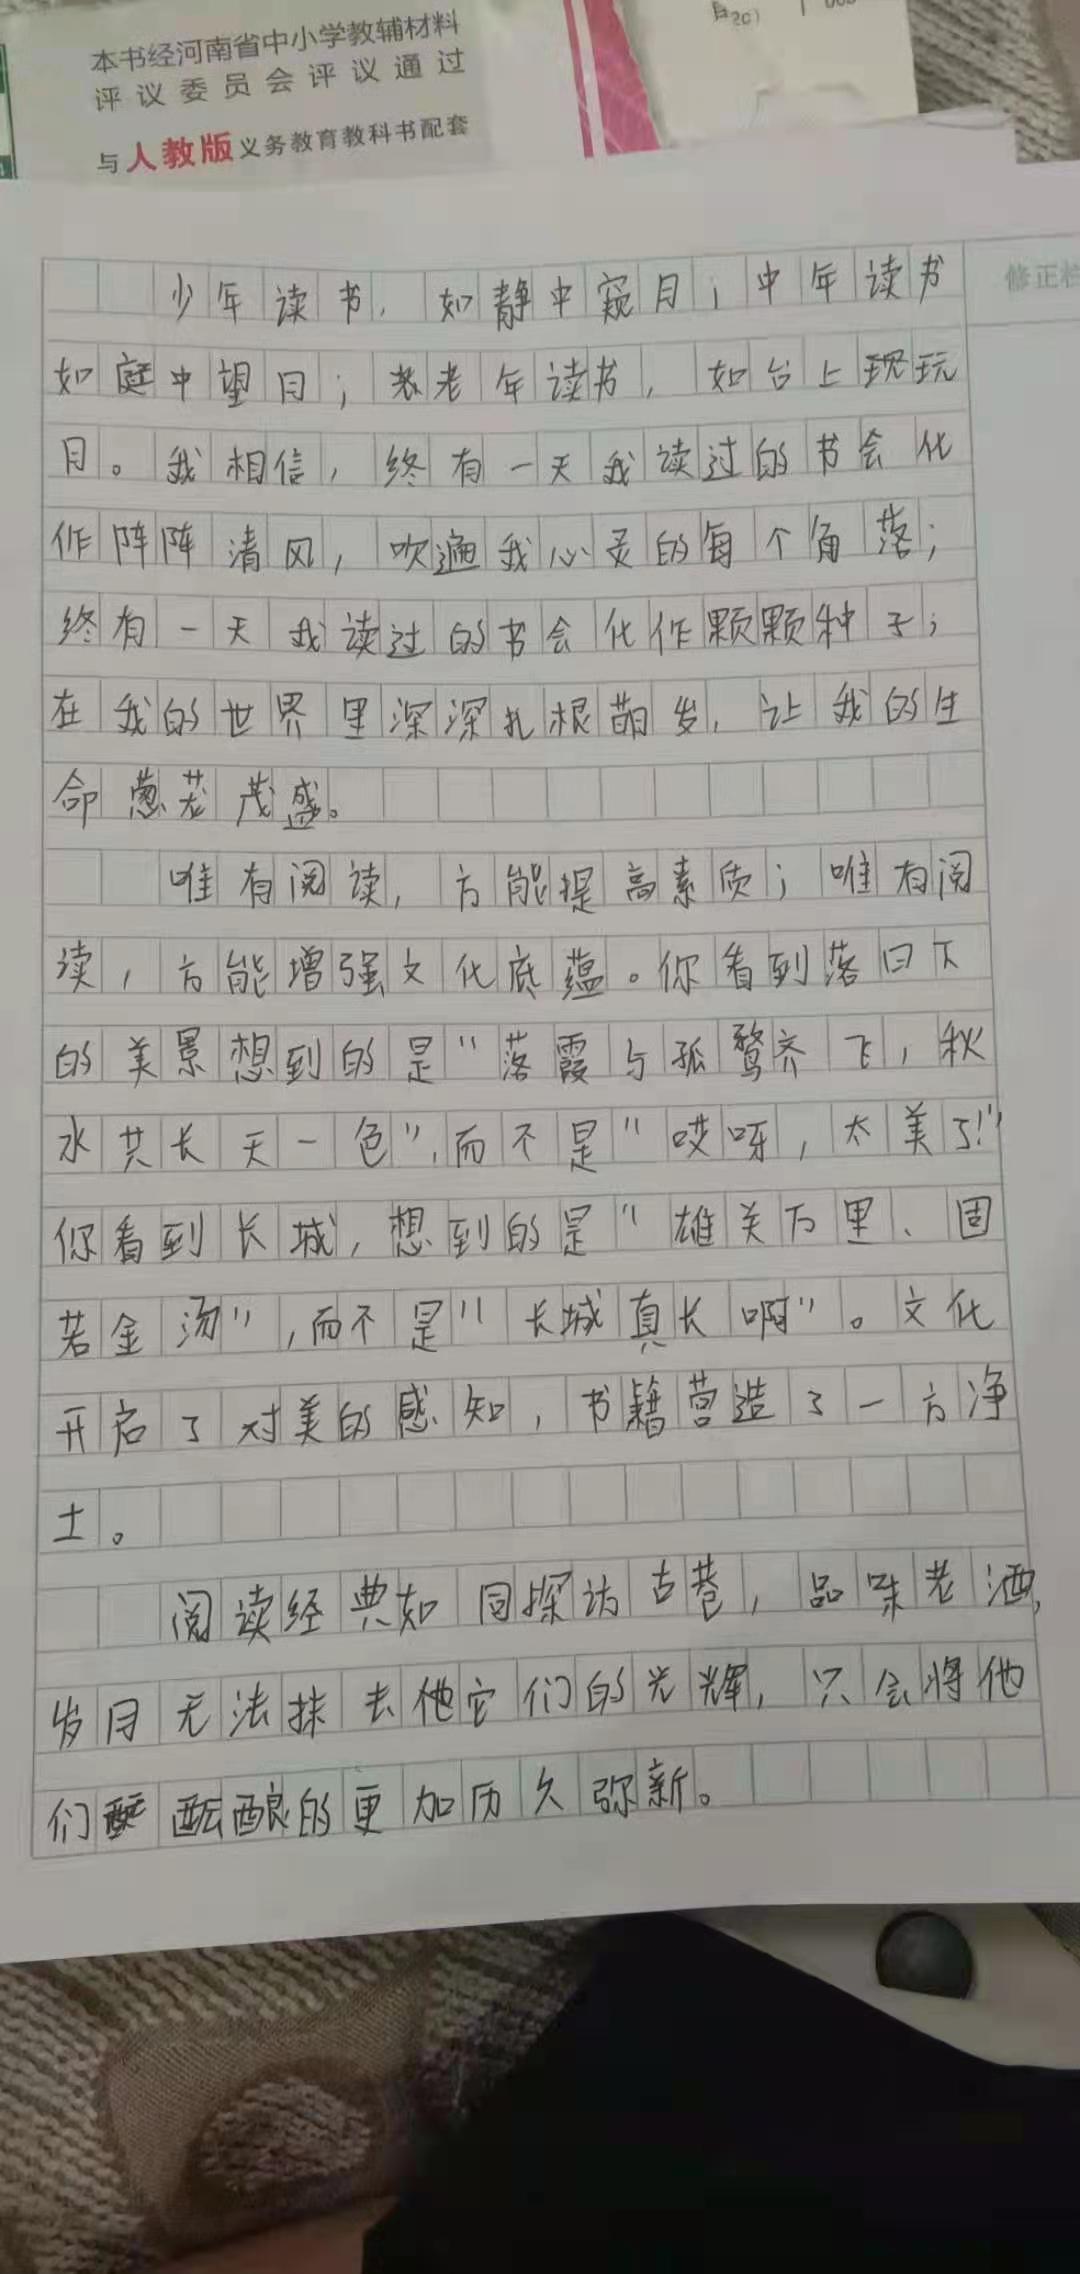 本书经河南省中小学教辅材料
评议委员会评议通过
与人教版义务教育教科书配套
修正栏
少年读书，如静中窥月；中年读书
如庭中望月；老年读书，如台上玩
月。我相信，终有一天我读过的书会化
作阵阵清风，吹遍我心灵的每个角落；
终有一天我读过的书会化作颗颗种子；
在我的世界里深深扎根萌发，让我的生
命葱茏茂盛。
唯有阅读，方能提高素质；唯有阅
读，方能增强文化底蕴。你看到落日下
的美景想到的是“落霞与孤鹜齐飞，秋
水共长天一色”，而不是“哎呀，太美了！”
你看到长城，想到的是“雄关万里、固
若金汤”，而不是“长城真长啊”。文化
开启了对美的感知，书籍营造了一方净
土。
阅读经典如同探访古巷，品味老酒，
岁月无法抹去它们的光辉，只会将他
们酝酿的更加历久弥新。